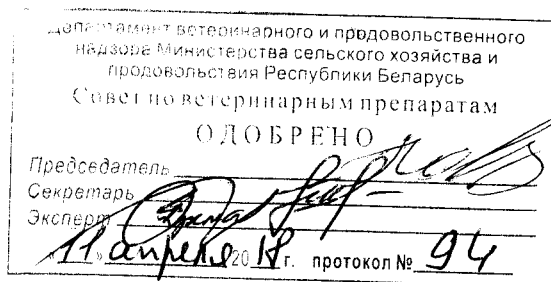 Департамент ветеринарного и продовольственного
надзора Министерства сельского хозяйства и
продовольствия Республики Беларусь
Совет по ветеринарным препаратам
ОДОБРЕНО
Председатель
Секретарь
Эксперт
«11» апреля 2018 г. протокол № 94